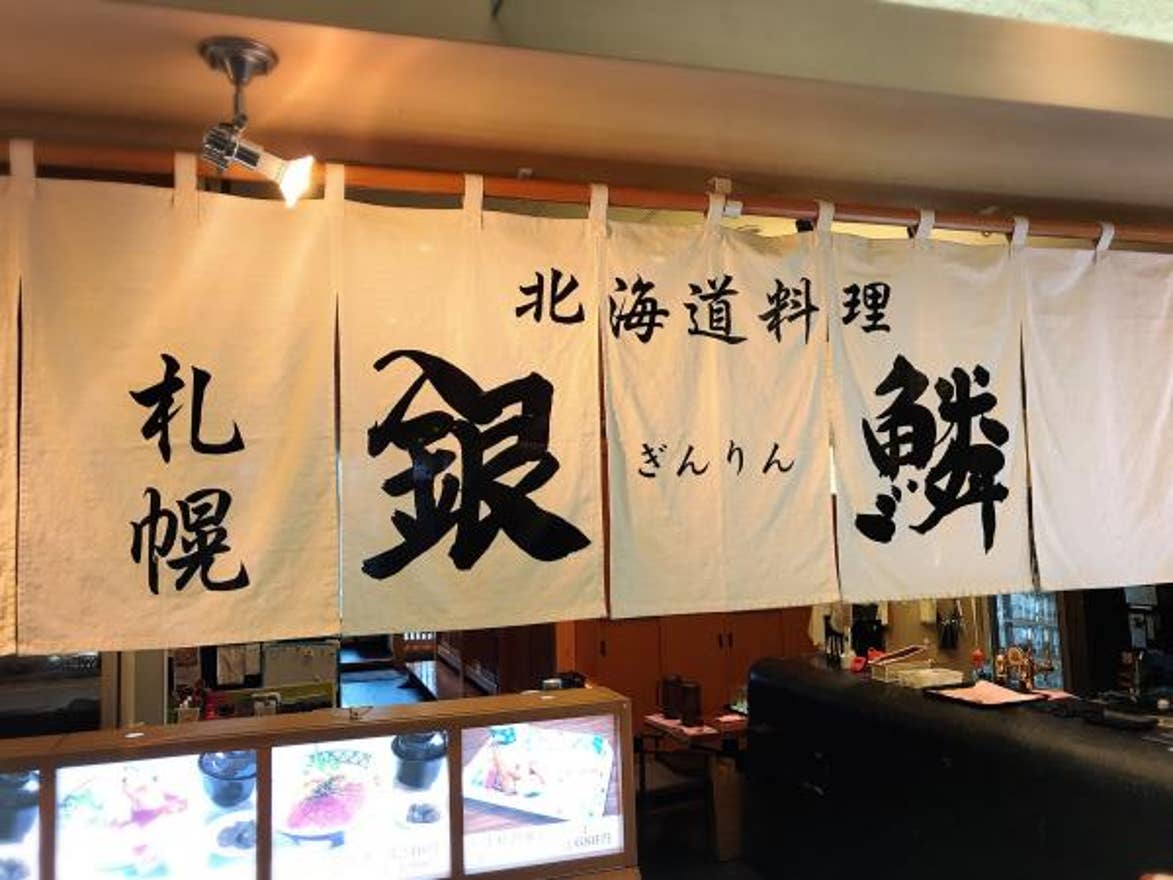 北海道料理
札幌
銀鱗
ぎんりん